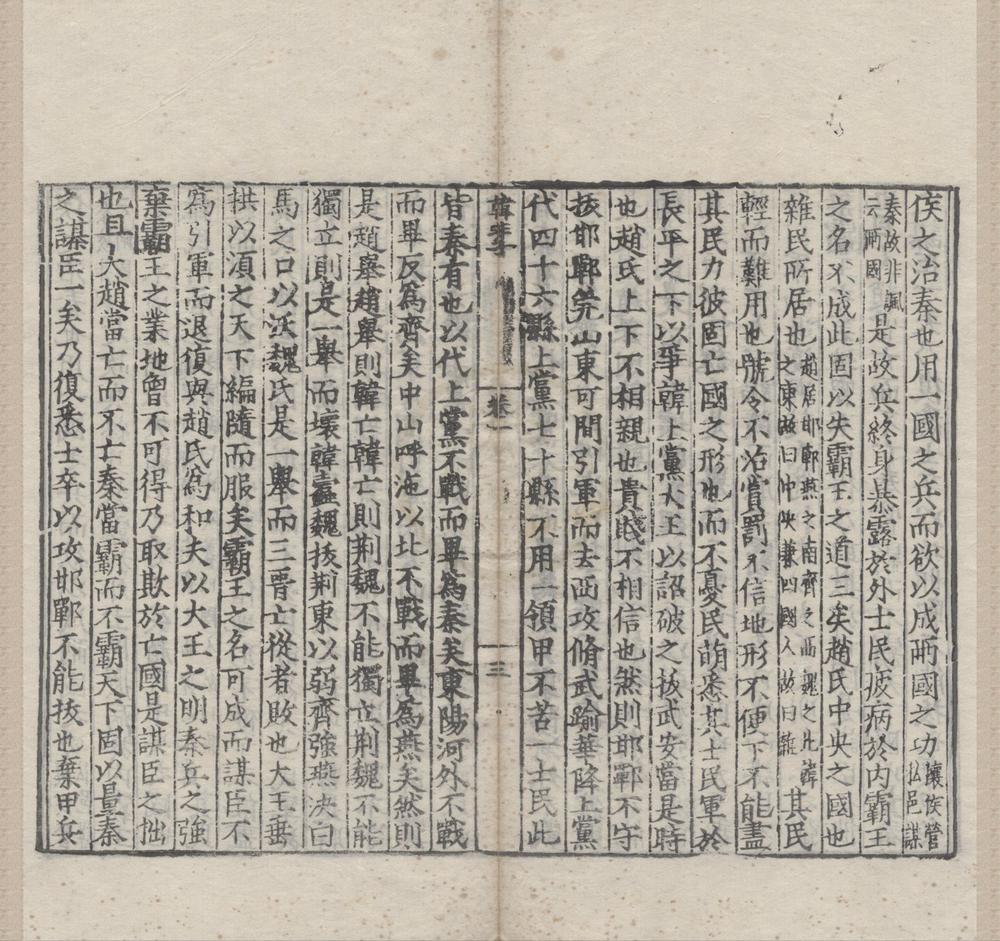 侯之治秦也用一國之兵而欲以成兩國之功穰侯營私邑謀
秦故非諷云兩國是故兵終身暴露於外士民疲病於內霸王
之名不成此固以失霸王之道三矣趙氏中央之國也
雜民所居也趙居邯鄲燕之南齊之西魏之北韓之東故曰中央兼四國人故曰雜其民
輕而難用也號令不治賞罰不信地形不便下不能盡
其民力彼固亡國之形也而不憂民萌悉其士民軍於
長平之下以爭韓上黨大王以詔破之拔武安當是時
也趙氏上下不相親也貴賤不相信也然則邯鄲不守
拔邯鄲筦山東可間引軍而去西攻脩武踰華降上黨
代四十六縣上黨七十縣不用一領甲不苦一士民此
韓非子 卷一 三
皆秦有也以代上黨不戰而畢爲秦矣東陽河外不戰
而畢反爲齊矣中山呼沲以北不戰而畢爲燕矣然則
是趙舉趙舉則韓亡韓亡則荆魏不能獨立荆魏不能
獨立則是一舉而壞韓蠹魏拔荆東以弱齊強燕決白
馬之口以沃魏氏是一舉而三晉亡從者敗也大王垂
拱以須之天下編隨而服矣霸王之名可成而謀臣不
爲引軍而退復與趙氏爲和夫以大王之明秦兵之強
棄霸王之業地曾不可得乃取欺於亡國是謀臣之拙
也且夫趙當亡而不亡秦當霸而不霸天下固以量秦
之謀臣一矣乃復悉士卒以攻邯鄲不能拔也棄甲兵